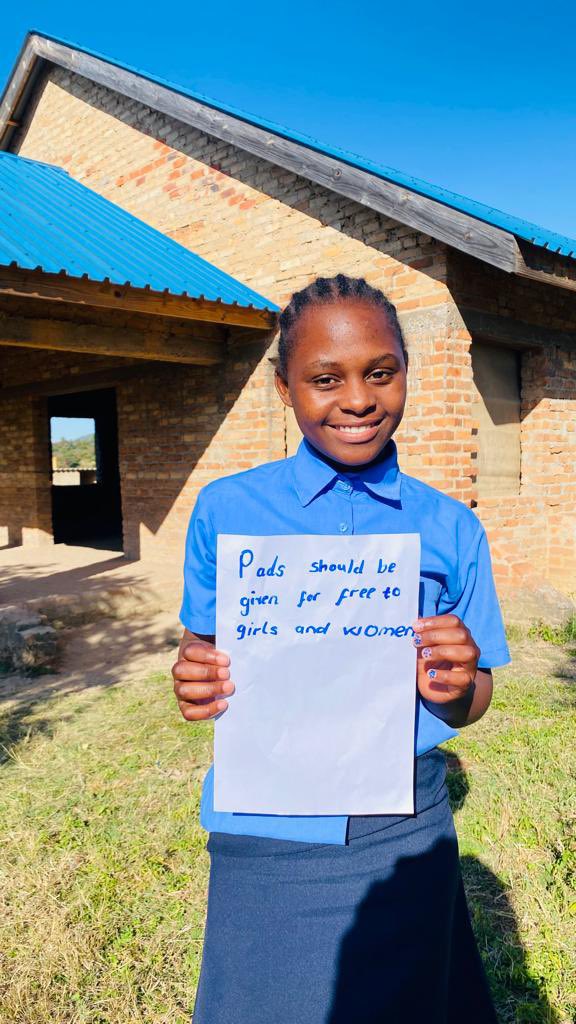 Pads should be
given for free to
girls and women